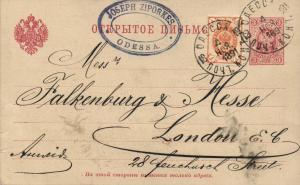 JOSEPH ZIPORKES
ODESSA.
ОТКРЫТОЕ ПИСЬМО.
ОДЕССА
Mess rs
Falkenburg & Hesse
London E. C.
28 Fenchurch Street.
На этой стороне
кроме адреса